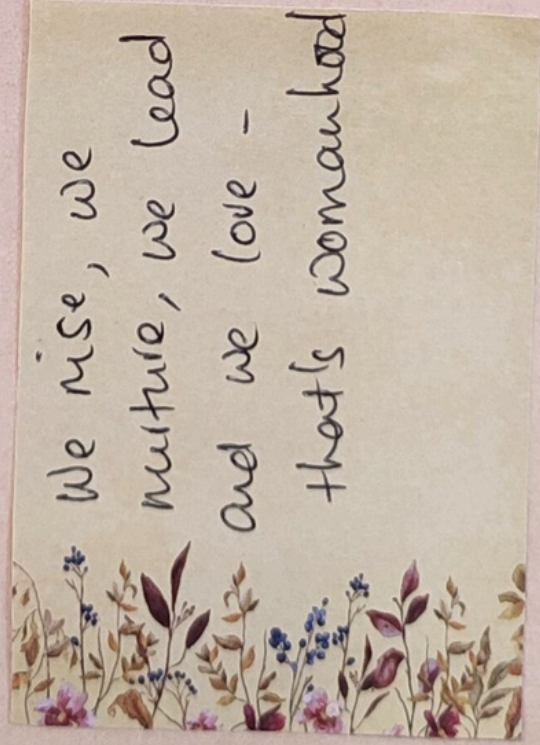 We rise, we
nurture, we lead
and we love -
that's womanhood